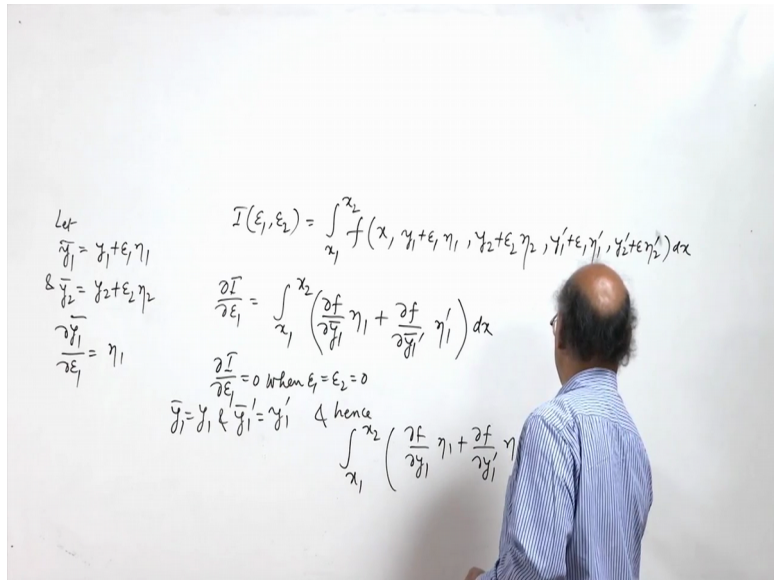 Let
ȳ₁ = y₁+ε₁η₁
& ȳ₂ = y₂+ε₂η₂
∂ȳ₁/∂ε₁ = η₁
I(ε₁,ε₂) = ∫_{x₁}^{x₂} f(x, y₁+ε₁η₁, y₂+ε₂η₂, y₁'+ε₁η₁', y₂'+εη₂') dx
∂I/∂ε₁ = ∫_{x₁}^{x₂} (∂f/∂ȳ₁ η₁ + ∂f/∂ȳ₁' η₁') dx
∂I/∂ε₁ = 0 when ε₁=ε₂=0
ȳ₁=y₁ & ȳ₁'=y₁' & hence
∫_{x₁}^{x₂} (∂f/∂y₁ η₁ + ∂f/∂y₁' η